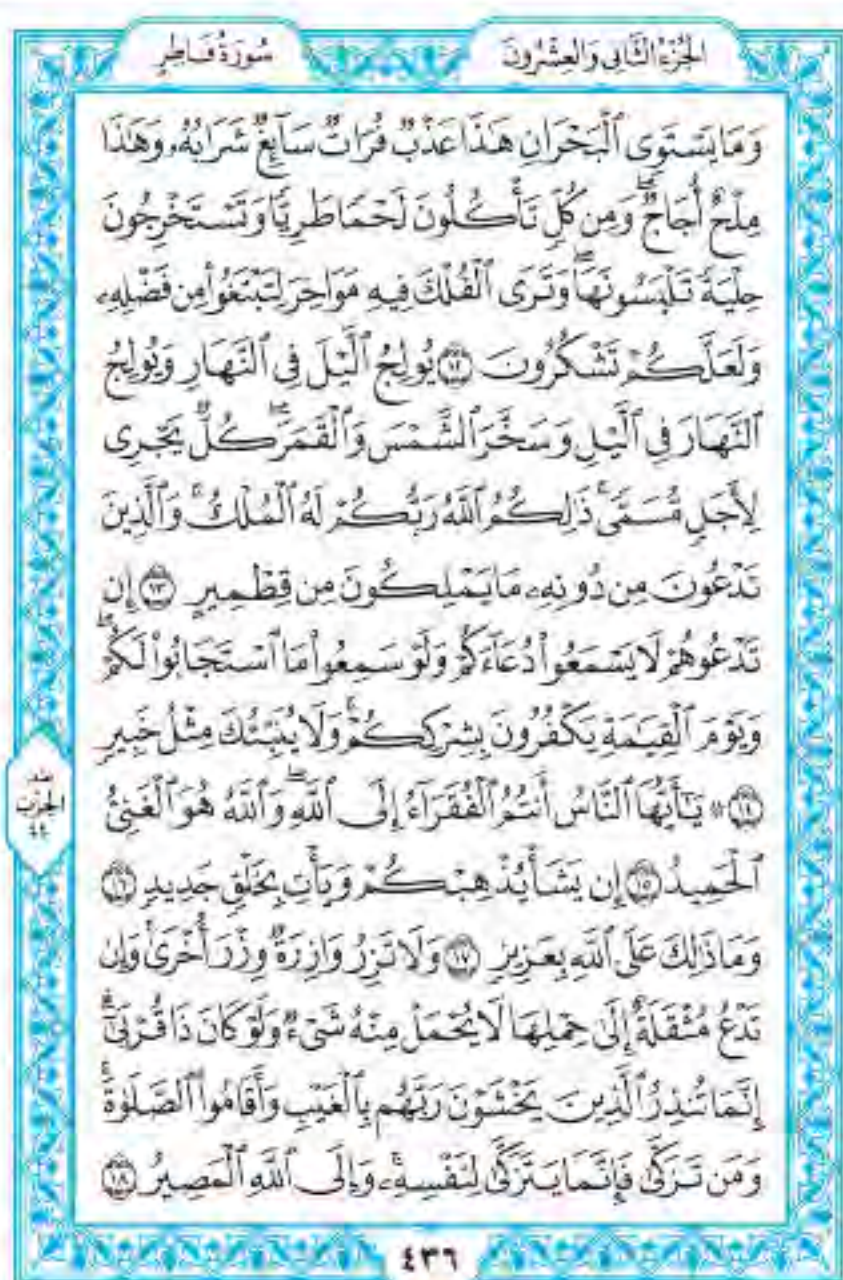 الجزء الثاني والعشرون
سورة فاطر
وَمَا يَسْتَوِى ٱلْبَحْرَانِ هَٰذَا عَذْبٌ فُرَاتٌ سَآئِغٌ شَرَابُهُۥ وَهَٰذَا
مِلْحٌ أُجَاجٌ ۖ وَمِن كُلٍّ تَأْكُلُونَ لَحْمًا طَرِيًّا وَتَسْتَخْرِجُونَ
حِلْيَةً تَلْبَسُونَهَا ۖ وَتَرَى ٱلْفُلْكَ فِيهِ مَوَاخِرَ لِتَبْتَغُوا۟ مِن فَضْلِهِۦ
وَلَعَلَّكُمْ تَشْكُرُونَ ١٢ يُولِجُ ٱلَّيْلَ فِى ٱلنَّهَارِ وَيُولِجُ
ٱلنَّهَارَ فِى ٱلَّيْلِ وَسَخَّرَ ٱلشَّمْسَ وَٱلْقَمَرَ ۖ كُلٌّ يَجْرِى
لِأَجَلٍ مُّسَمًّى ۚ ذَٰلِكُمُ ٱللَّهُ رَبُّكُمْ لَهُ ٱلْمُلْكُ ۚ وَٱلَّذِينَ
تَدْعُونَ مِن دُونِهِۦ مَا يَمْلِكُونَ مِن قِطْمِيرٍ ١٣ إِن
تَدْعُوهُمْ لَا يَسْمَعُوا۟ دُعَآءَكُمْ وَلَوْ سَمِعُوا۟ مَا ٱسْتَجَابُوا۟ لَكُمْ ۖ
وَيَوْمَ ٱلْقِيَٰمَةِ يَكْفُرُونَ بِشِرْكِكُمْ ۚ وَلَا يُنَبِّئُكَ مِثْلُ خَبِيرٍ
١٤ ۞ يَٰٓأَيُّهَا ٱلنَّاسُ أَنتُمُ ٱلْفُقَرَآءُ إِلَى ٱللَّهِ ۖ وَٱللَّهُ هُوَ ٱلْغَنِىُّ
ٱلْحَمِيدُ ١٥ إِن يَشَأْ يُذْهِبْكُمْ وَيَأْتِ بِخَلْقٍ جَدِيدٍ ١٦
وَمَا ذَٰلِكَ عَلَى ٱللَّهِ بِعَزِيزٍ ١٧ وَلَا تَزِرُ وَازِرَةٌ وِزْرَ أُخْرَىٰ ۚ وَإِن
تَدْعُ مُثْقَلَةٌ إِلَىٰ حِمْلِهَا لَا يُحْمَلْ مِنْهُ شَىْءٌ وَلَوْ كَانَ ذَا قُرْبَىٰٓ ۗ
إِنَّمَا تُنذِرُ ٱلَّذِينَ يَخْشَوْنَ رَبَّهُم بِٱلْغَيْبِ وَأَقَامُوا۟ ٱلصَّلَوٰةَ ۚ
وَمَن تَزَكَّىٰ فَإِنَّمَا يَتَزَكَّىٰ لِنَفْسِهِۦ ۚ وَإِلَى ٱللَّهِ ٱلْمَصِيرُ ١٨
الحزب
٤٤
٤٣٦